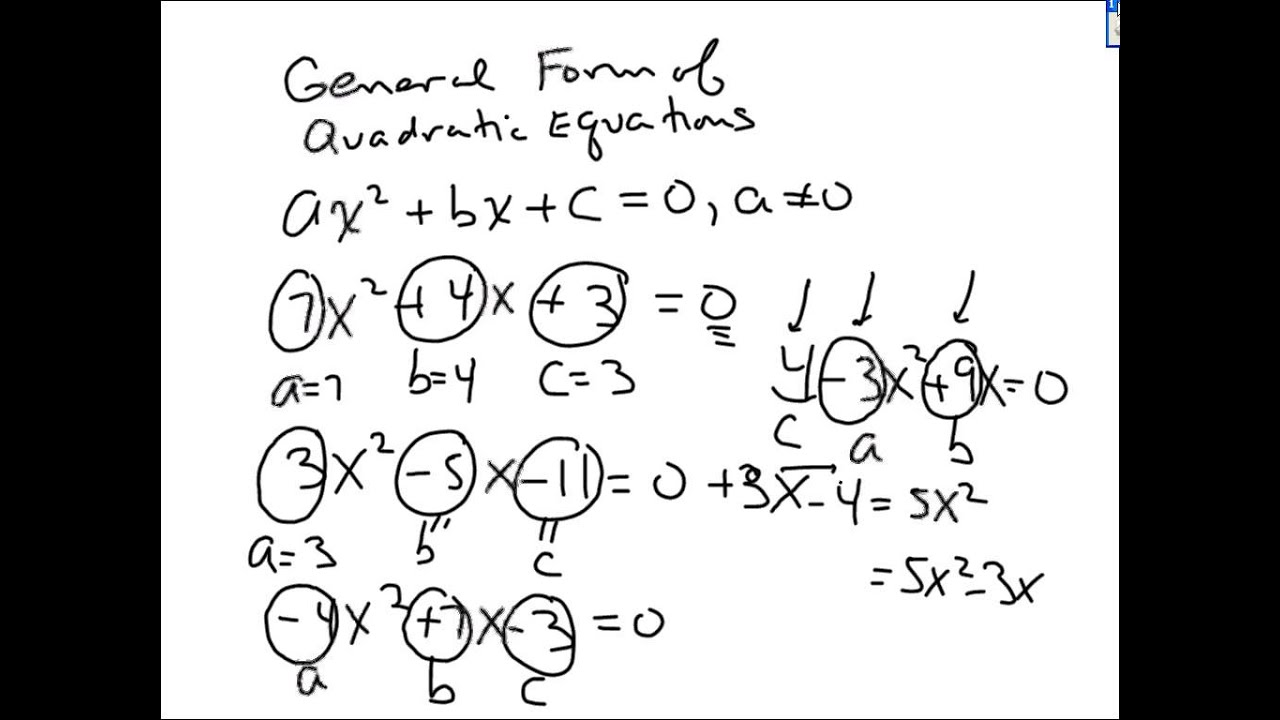 General Form of
Quadratic Equations
ax² + bx + c = 0, a ≠ 0
7x² + 4x + 3 = 0
a=7 b=4 c=3
4 - 3x² + 9x = 0
c a b
3x² - 5x - 11 = 0
a=3 b c
+3x - 4 = 5x²
= 5x² - 3x
-4x² + 7x - 3 = 0
a b c
1